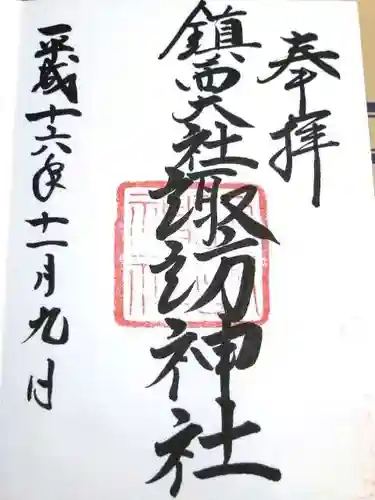 奉拝
鎮西大社諏訪神社
平成十六年十一月九日